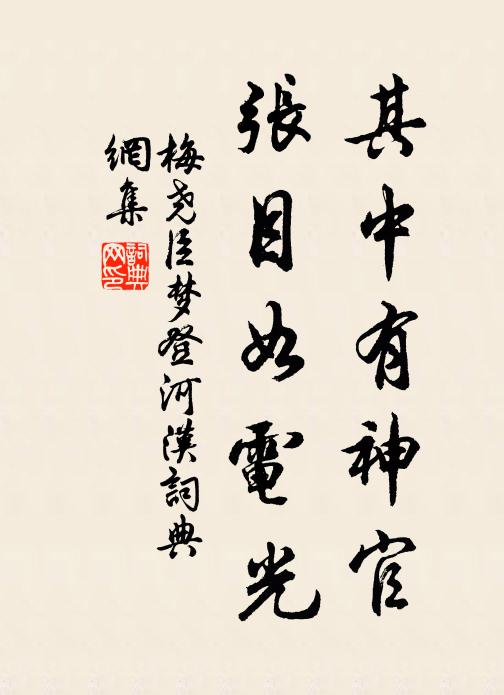 其中有神官
張目如電光
梅尧臣梦登河漢詞典
網集
詞典
网印